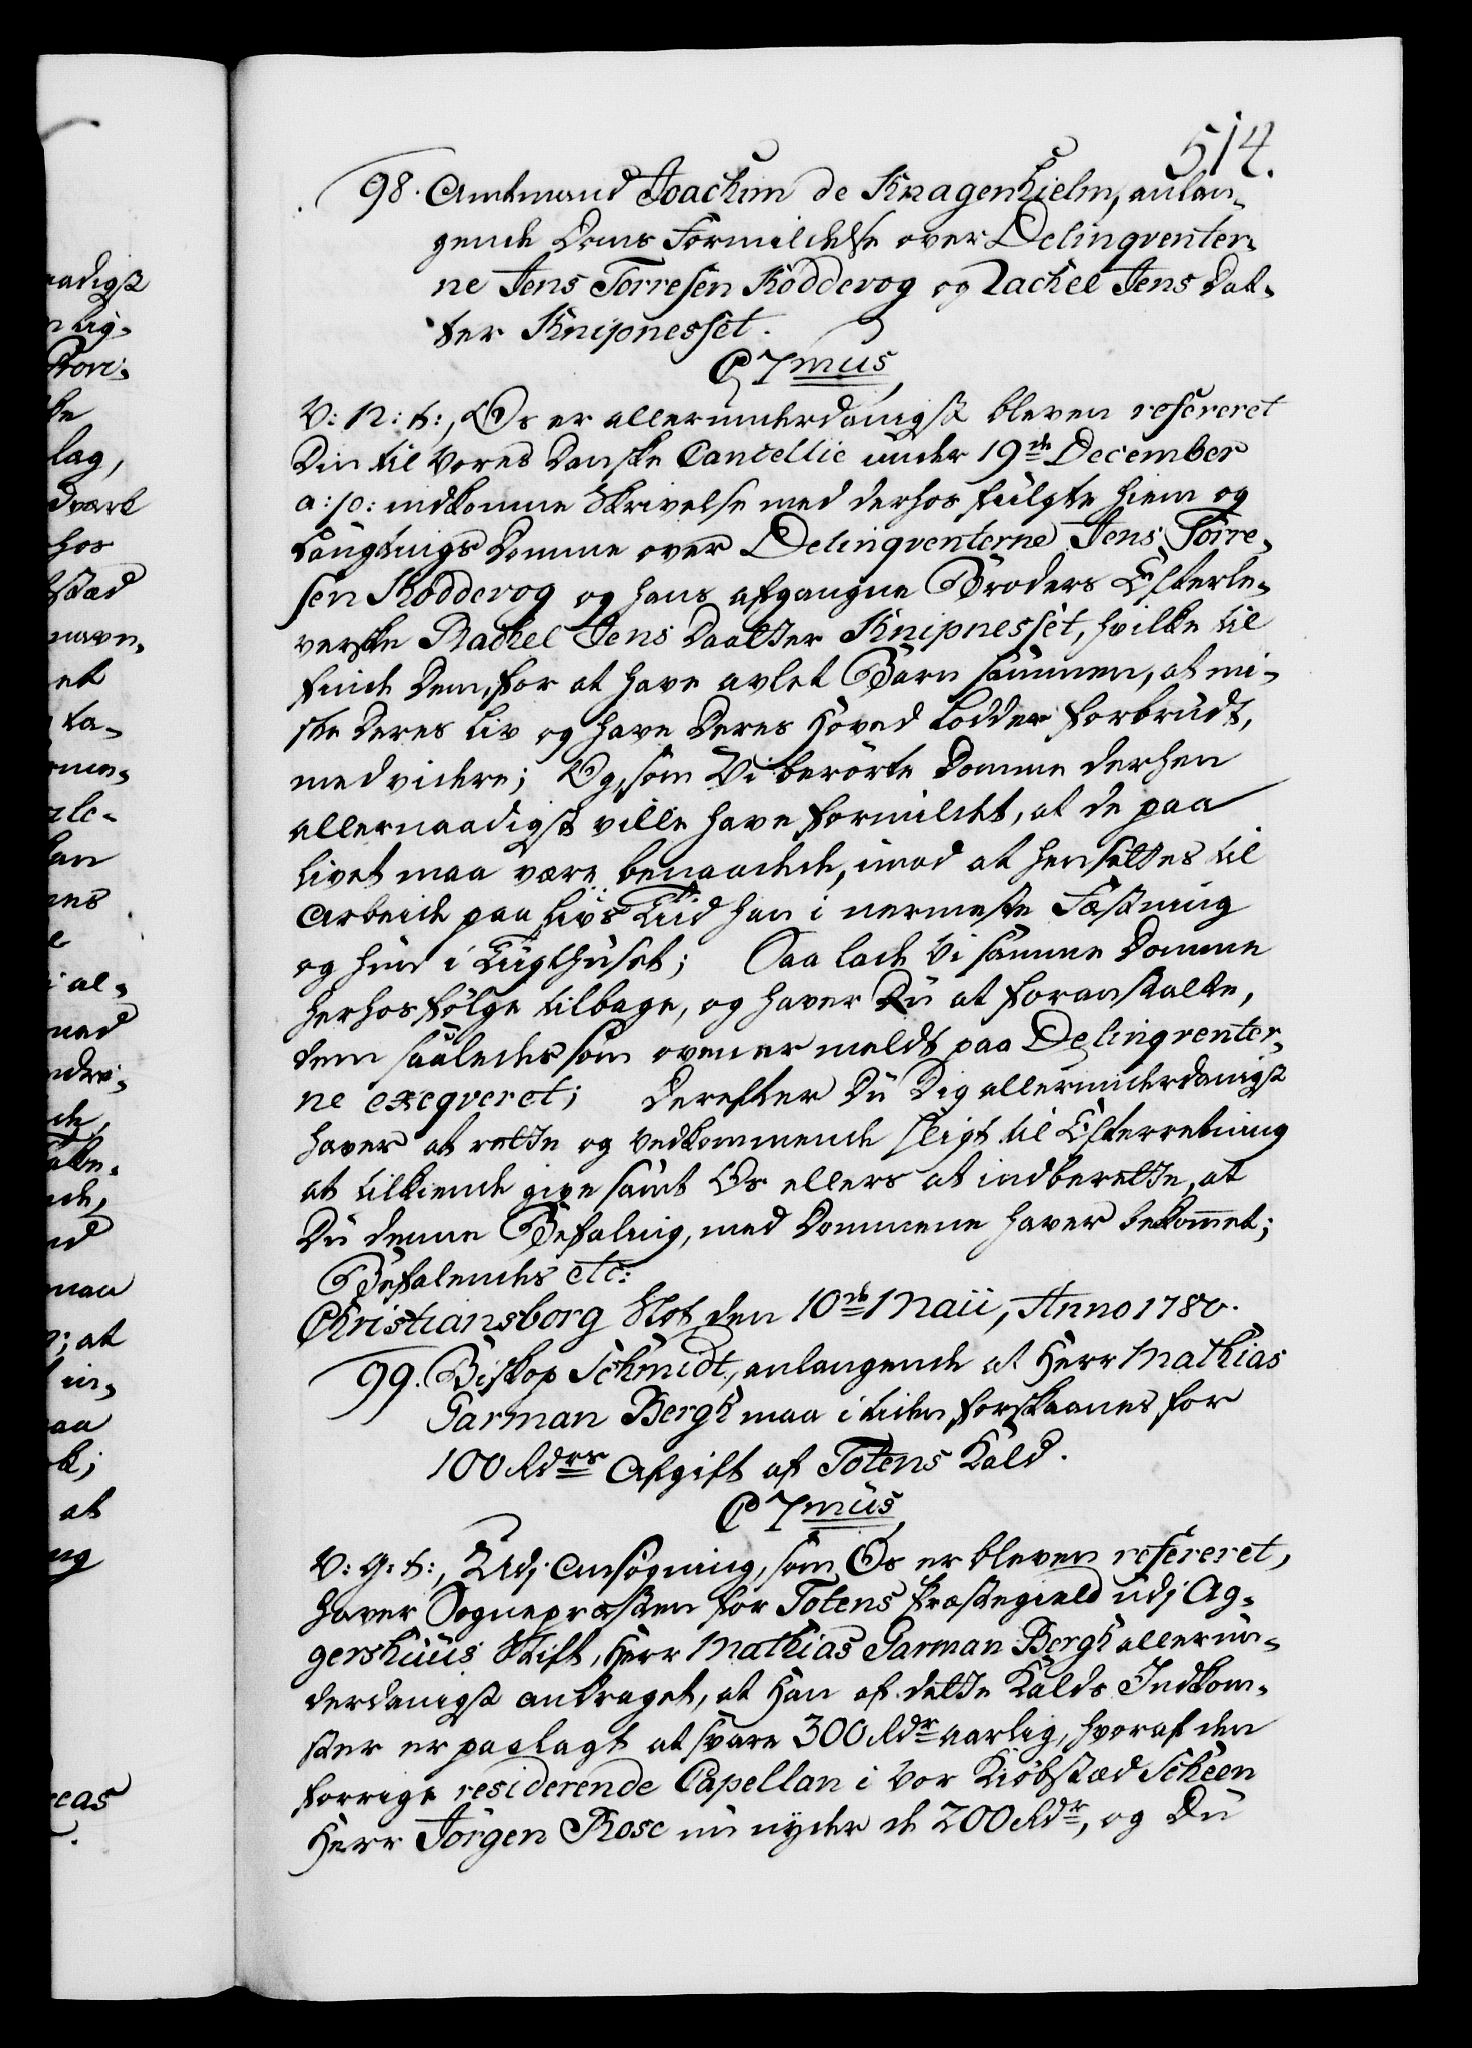 514.
98. Amtmand Joachim de Knagenhielm, anlan-
gende Doms Formildelse over Delinqventer-
ne Jens Torresen Kodderog og Rachel Jens Dat-
ter Knipnesset.
C 7mus,
V: N: t:, Os er allerunderdanigst bleven refereret
Din til Vores Danske Cancellie under 19de December
a: p: indkomne Skrivelse med derhos fulgte Hiem og
Laugtings Domme over Delinqventerne Jens Torre-
sen Kodderog og hans afgangne Broders Efterle-
verske Rachel Jens Daatter Knipnesset, hvilke til
finde dem, for at have avlet Barn sammen, at mi-
ste deres Liv og have deres Hoved Lodder forbrudt,
med videre; Og, som Vi berörte Domme derhen
allernaadigst ville have formildet, at de paa
Livet maa være benaadede, imod at hensættes til
Arbeide paa Livs Tiid han i nermeste Fæstning
og hun i Tugthuset; Saa lade Vi samme Domme
herhos følge tilbage, og haver Du at foranstalte,
dem saaledes som oven er meldt paa Delinqventer-
ne exeqveret; Derefter Du Dig allerunderdanigst
haver at rette og vedkommende sligt til Efterretning
at tilkiende give samt Os ellers at indberette, at
Du denne Befaling, med Dommene haver bekommet;
Befalendes etc:
Christiansborg Slot den 10de Maii, Anno 1780.
99. Biskop Schmidt, anlangende at Herr Mathias
Garman Bergh maa i tiden forskaanes for
100 Rdrs Afgift af Totens Kald.
C 7mus,
V: G: t:, Udj Ansøgning, som Os er bleven refereret,
haver Sognepræsten for Totens Præstegield udj Ag-
gershuus Stift, Herr Mathias Garman Bergh allerun-
derdanigst andraget, at Han af dette Kalds Indkom-
ster er paalagt at svare 300 Rdr aarlig, hvoraf den
forrige residerende Capellan i Vor Kiöbstæd Scheen
Herr Jörgen Rose nu nyder de 200 Rdr, og Du